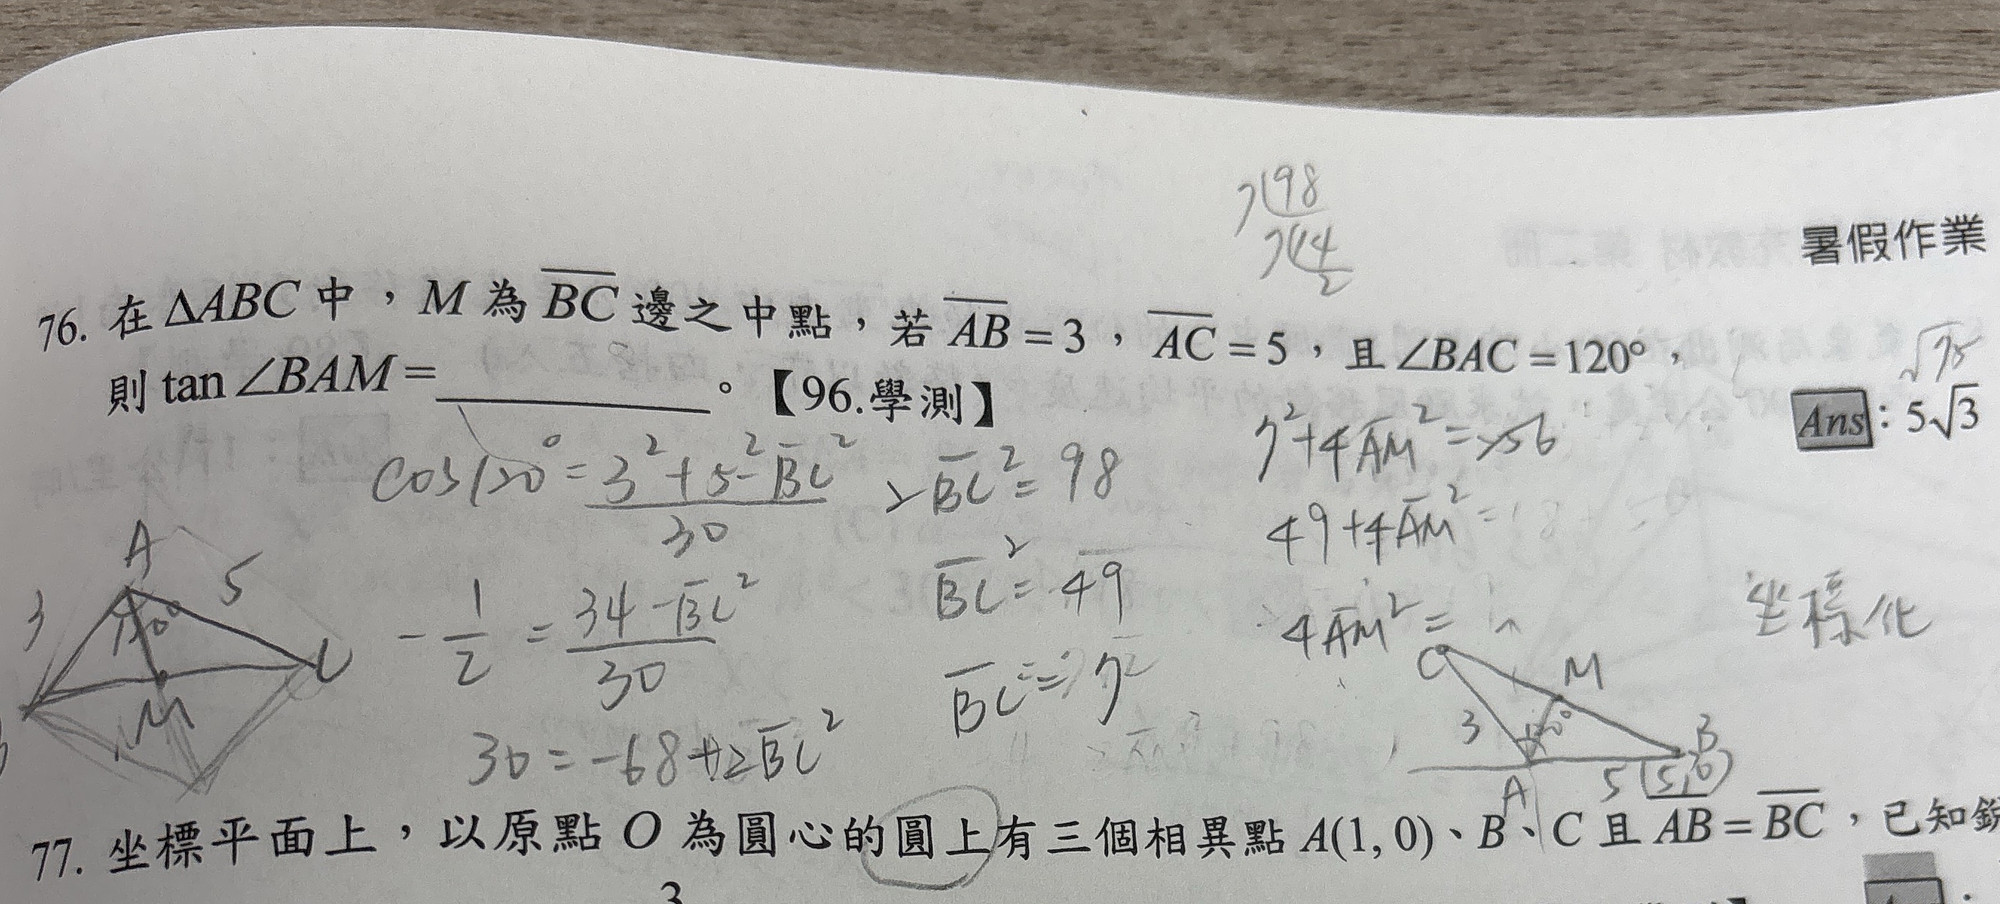 7 98
7 14
2
暑假作業
76. 在 ΔABC 中，M 為 BC 邊之中點，若 AB = 3，AC = 5，且 ∠BAC = 120°，
則 tan ∠BAM = ________。【96.學測】
Ans : 5√3
√75
cos120° = (3² + 5² - BC²)/30
-1/2 = (34 - BC²)/30
30 = -68 + 2BC²
2BC² = 98
BC² = 49
BC = 7
7² + 4AM² = 256
49 + 4AM² =
4AM² =
坐標化
A
3
5
120°
M
C
C
M
3
120°
B
A
5
(5,0)
77. 坐標平面上，以原點 O 為圓心的圓上有三個相異點 A(1, 0)、B、C 且 AB = BC，已知銳
3